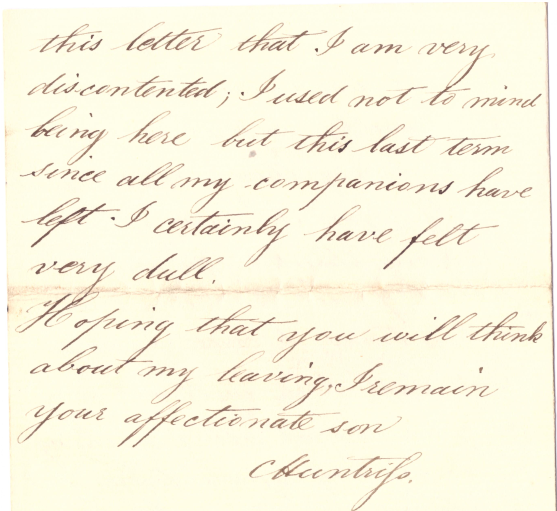 this letter that I am very
discontented; I used not to mind
being here but this last term
since all my companions have
left I certainly have felt
very dull.
Hoping that you will think
about my leaving, I remain
your affectionate son
C Huntriſs.